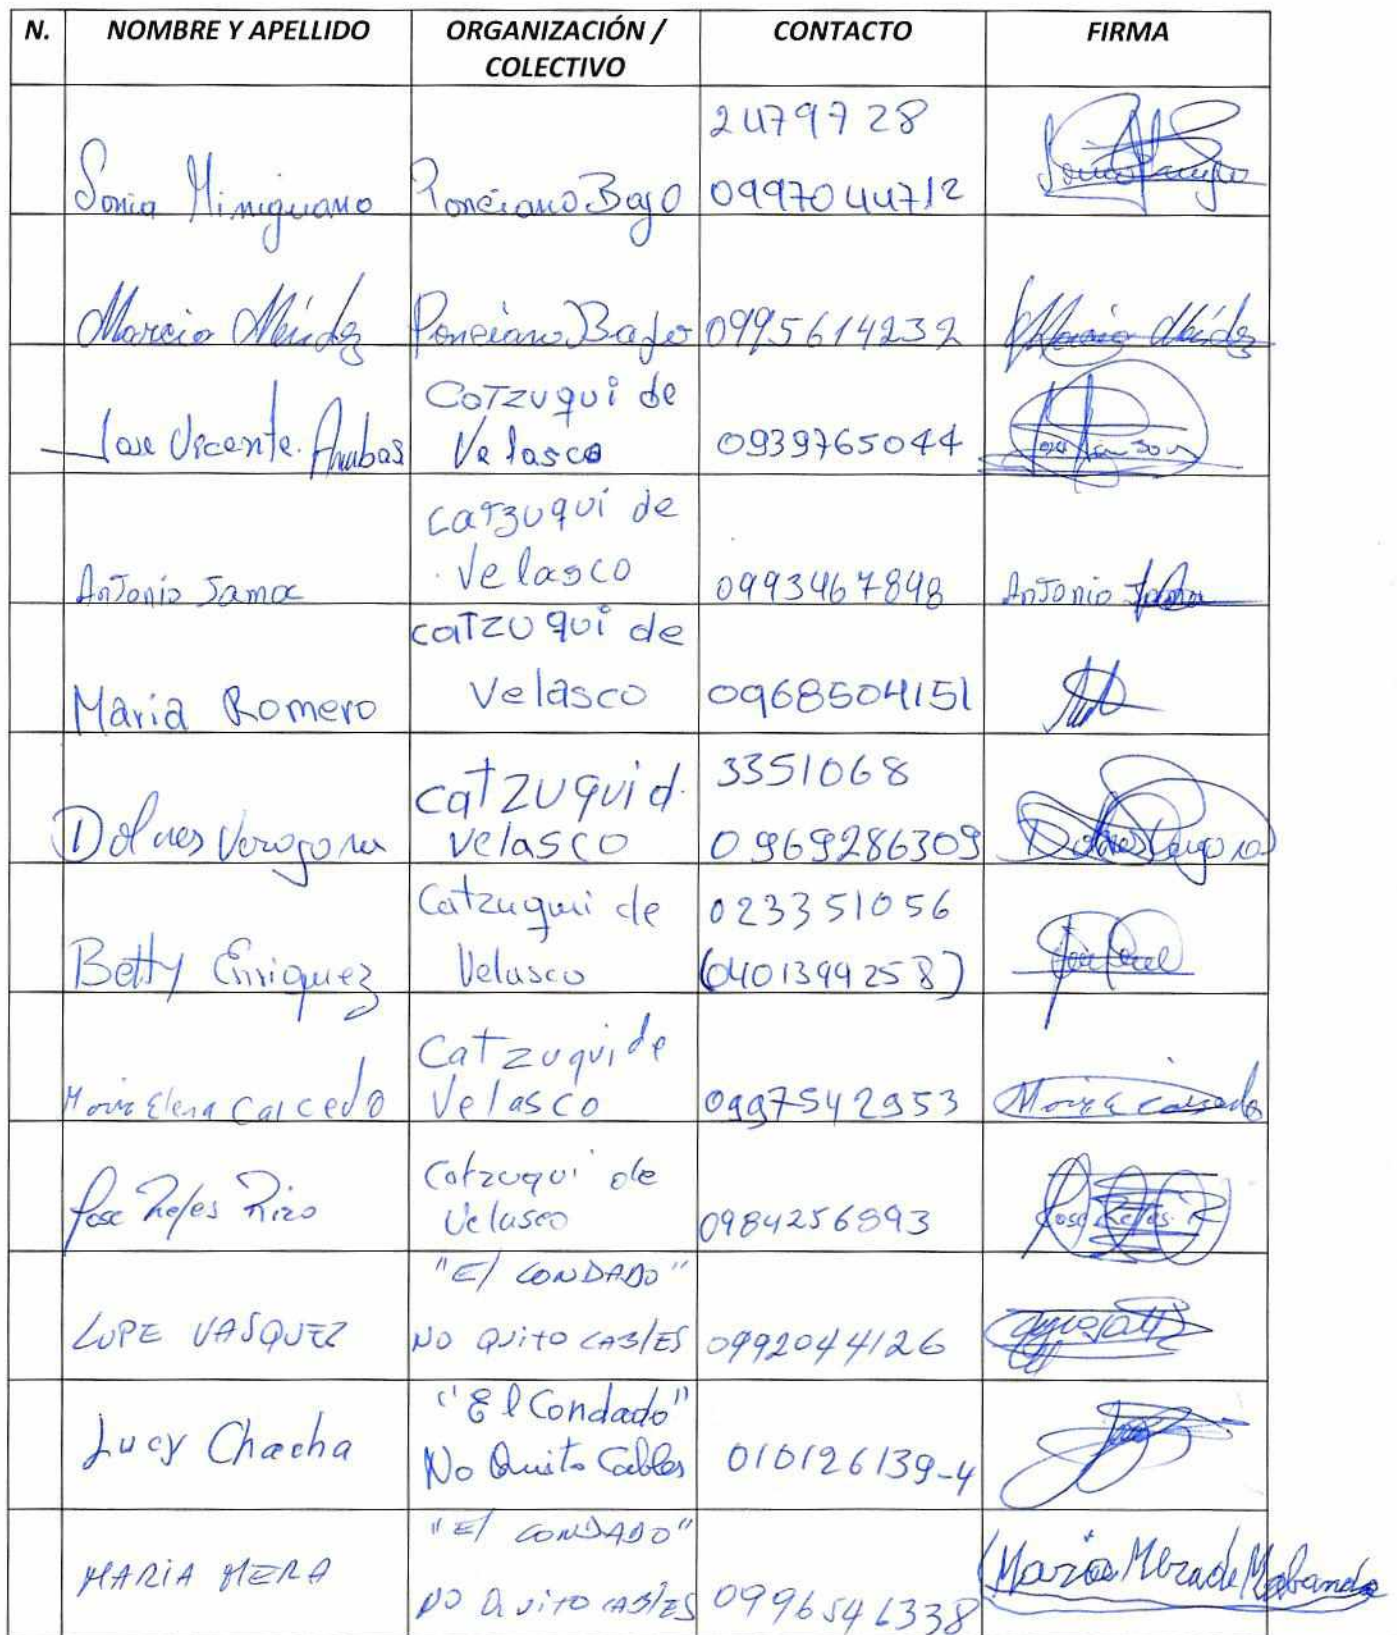 N. NOMBRE Y APELLIDO ORGANIZACIÓN / COLECTIVO CONTACTO FIRMA
Sonia Miniguano Ponciano Bajo 2479728 0997044712
Marcia Méndez Ponciano Bajo 0995614232 Marcia Méndez
Jose Vicente Cotzuqui de Velasco 0939765044
Antonio Jama Catzuqui de Velasco 0993467848 Antonio Jama
Maria Romero catzuqui de Velasco 0968504151
Dolores catzuqui d. velasco 3351068 0969286309 Dolores
Betty Enriquez Catzuqui de Velasco 023351056 (0401399258)
Maria Elena Caicedo Catzuqui de Velasco 0997542953 Maria E Caicedo
Jose Refes Rizo Catzuqui de Velasco Jose Refes R
LUPE VASQUEZ "El CONDADO" NO QUITO CABLES 0992044126
Lucy Chacha "El Condado" No Quito Cables 010126139-4
MARIA MERA "El CONDADO" NO QUITO CABLES 0996546338 Maria Mera de Mabanda